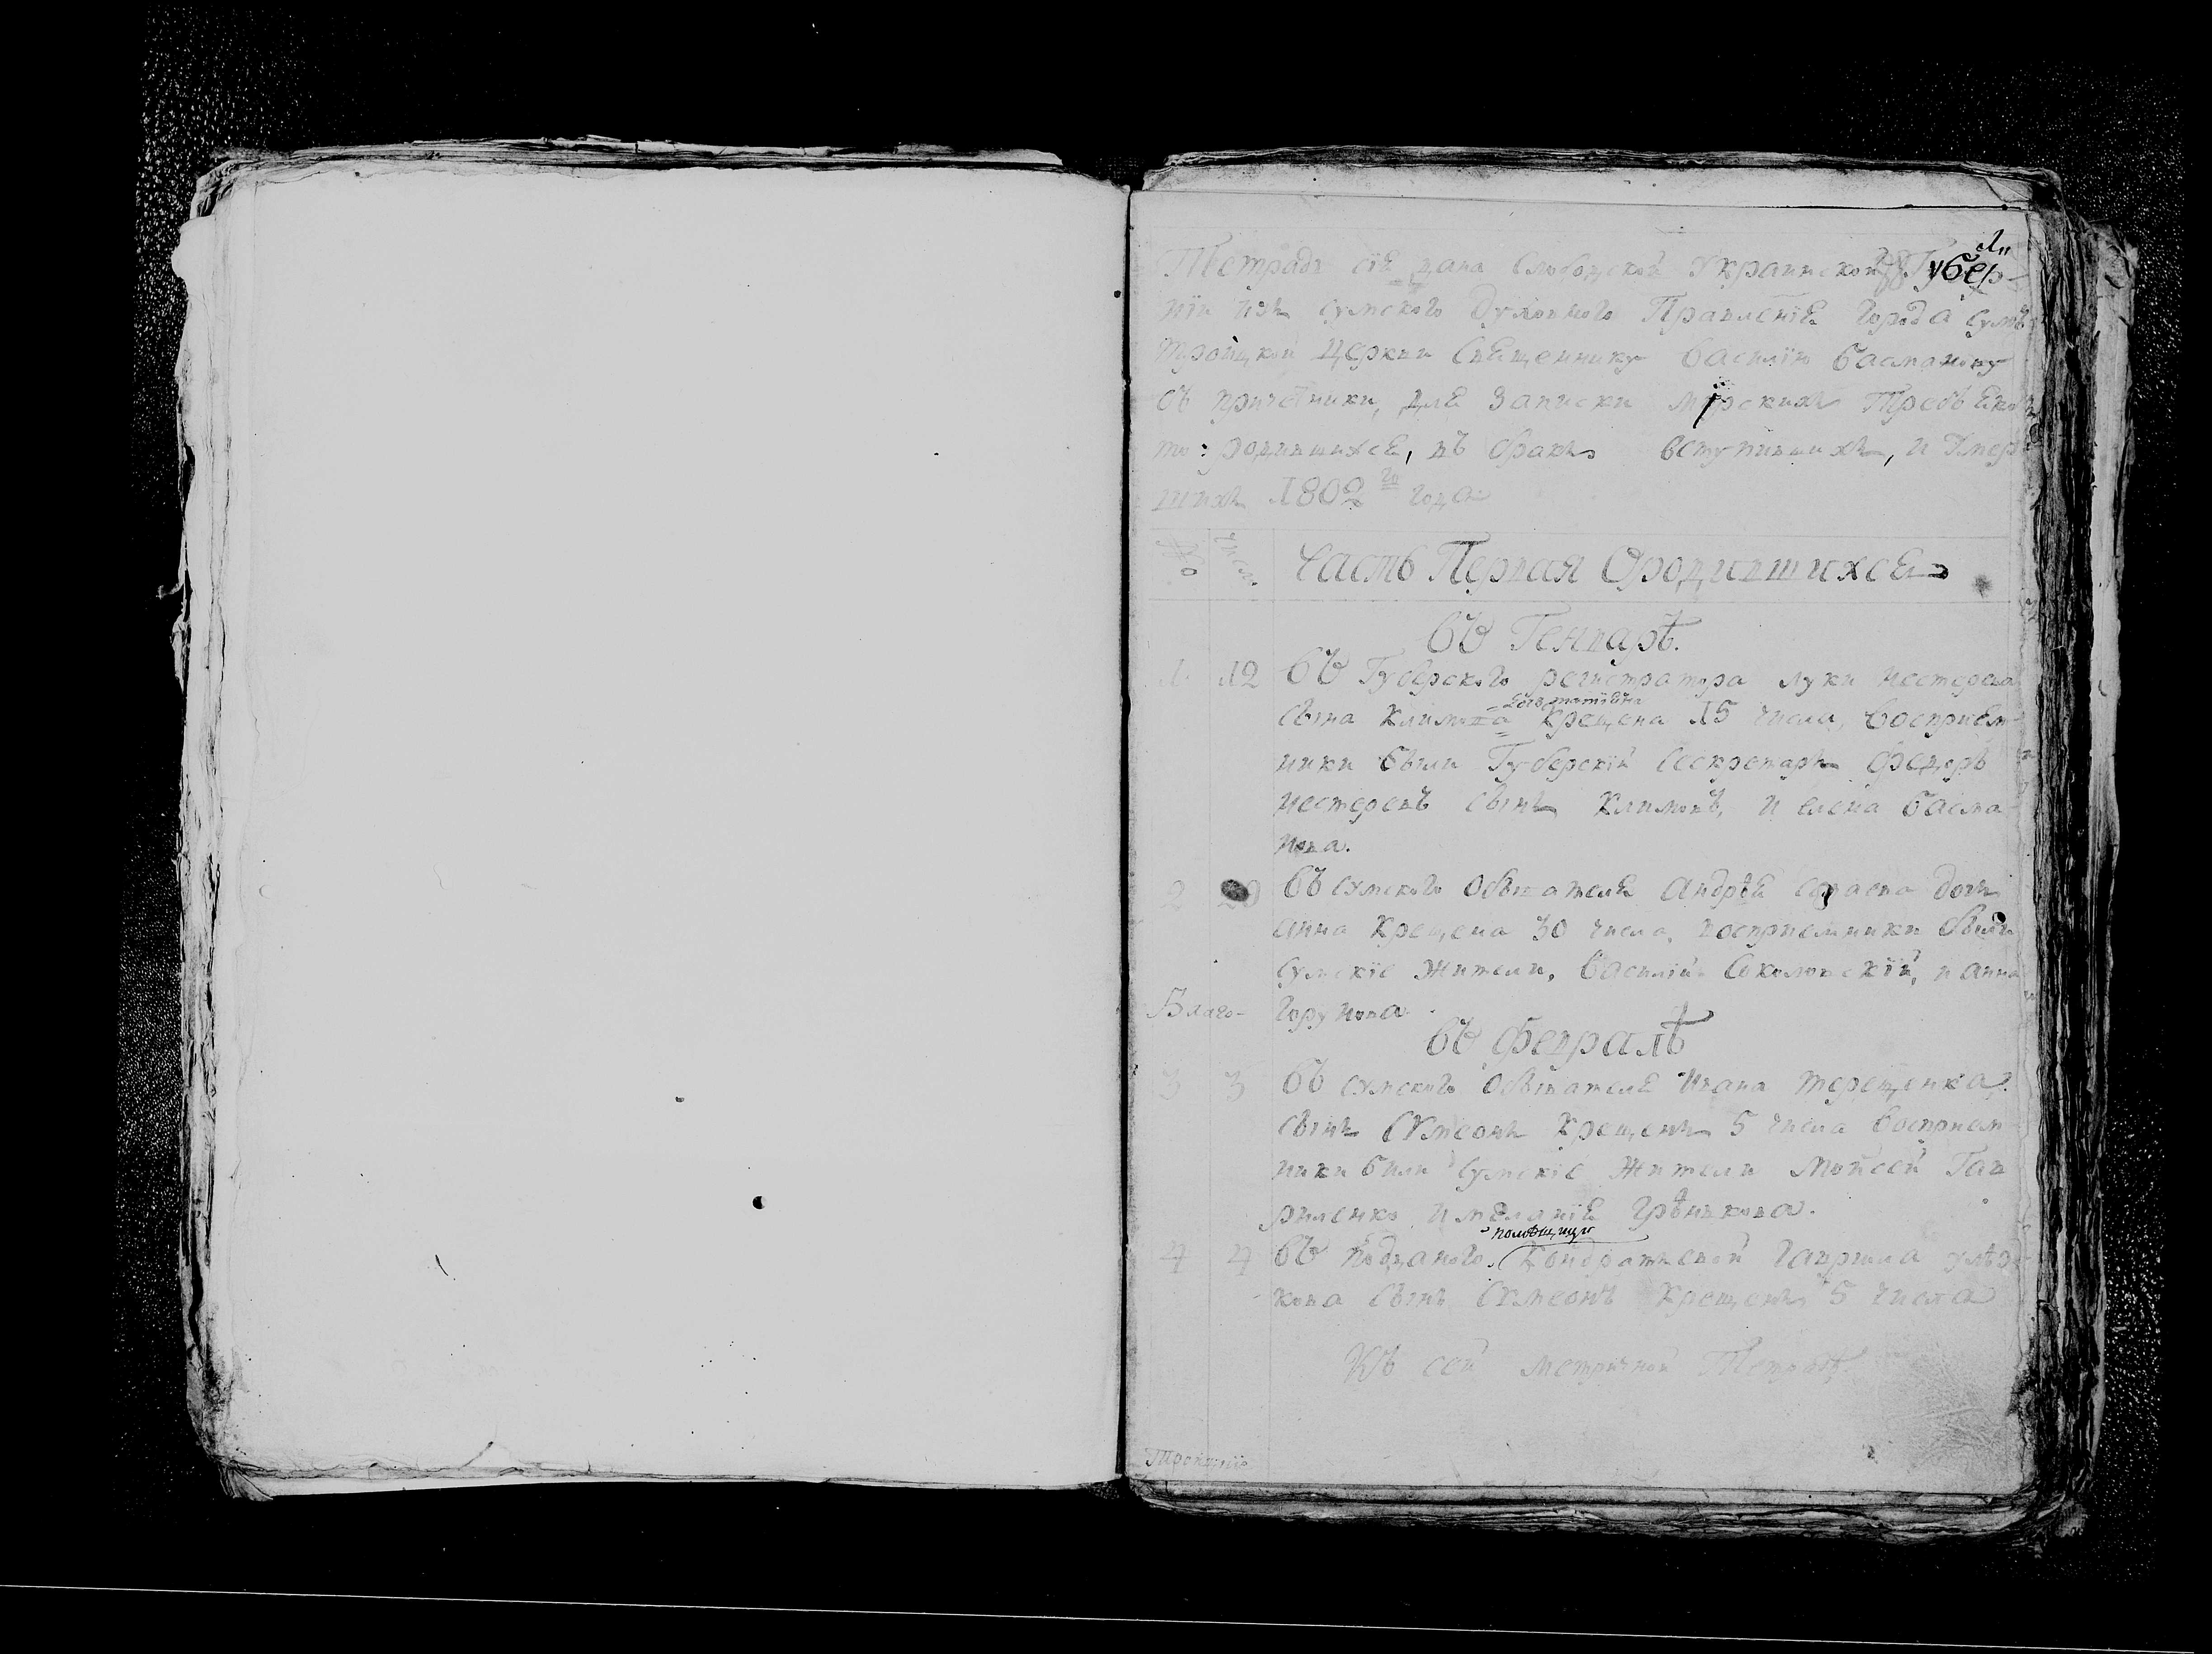 Тѣтрадь сїя дана Слободской Украинской Губер-
нїи изъ Сумского Духовного Правленїя города Сумъ
Троицкой Церкви Священнику Василїю Басманову
съ причетники, для записки мирскихъ требъ яко
то: родившихся, въ бракъ вступившихъ, и Умер
шихъ 1802 го года
№ Числ. Часть Первая О родившихся
Въ Генварѣ.
1 12 Въ Губерского регистратора Луки Нестерова
Сына Климова крещена 15 числа, Восприем-
ники были Губерскїй Секретарь Федоръ
Нестеровъ сынъ Климовъ, и елена Басма
нова.
2 29 Въ Сумского Обывателя Андрея дочь
Анна Крещена 30 числа, восприемники были
Сумскїе Жители, Василїй Соколовскїй, и анна
Благо- Горунова
Въ Февралѣ
3 3 Въ Сумского Обывателя Ивана Терещенка
сынъ Сѵмеонъ Крещенъ 5 числа восприем
ники были Сумскїе Жители Мойсей Гав
риленко и меланїя Грѣнькова.
помѣщицы
4 4 Въ подданого Кондратьевой Гаврила
кова Сынъ Сѵмеонъ Крещенъ 5 числа
Къ сей метричной Тетрадѣ
Троицкїя